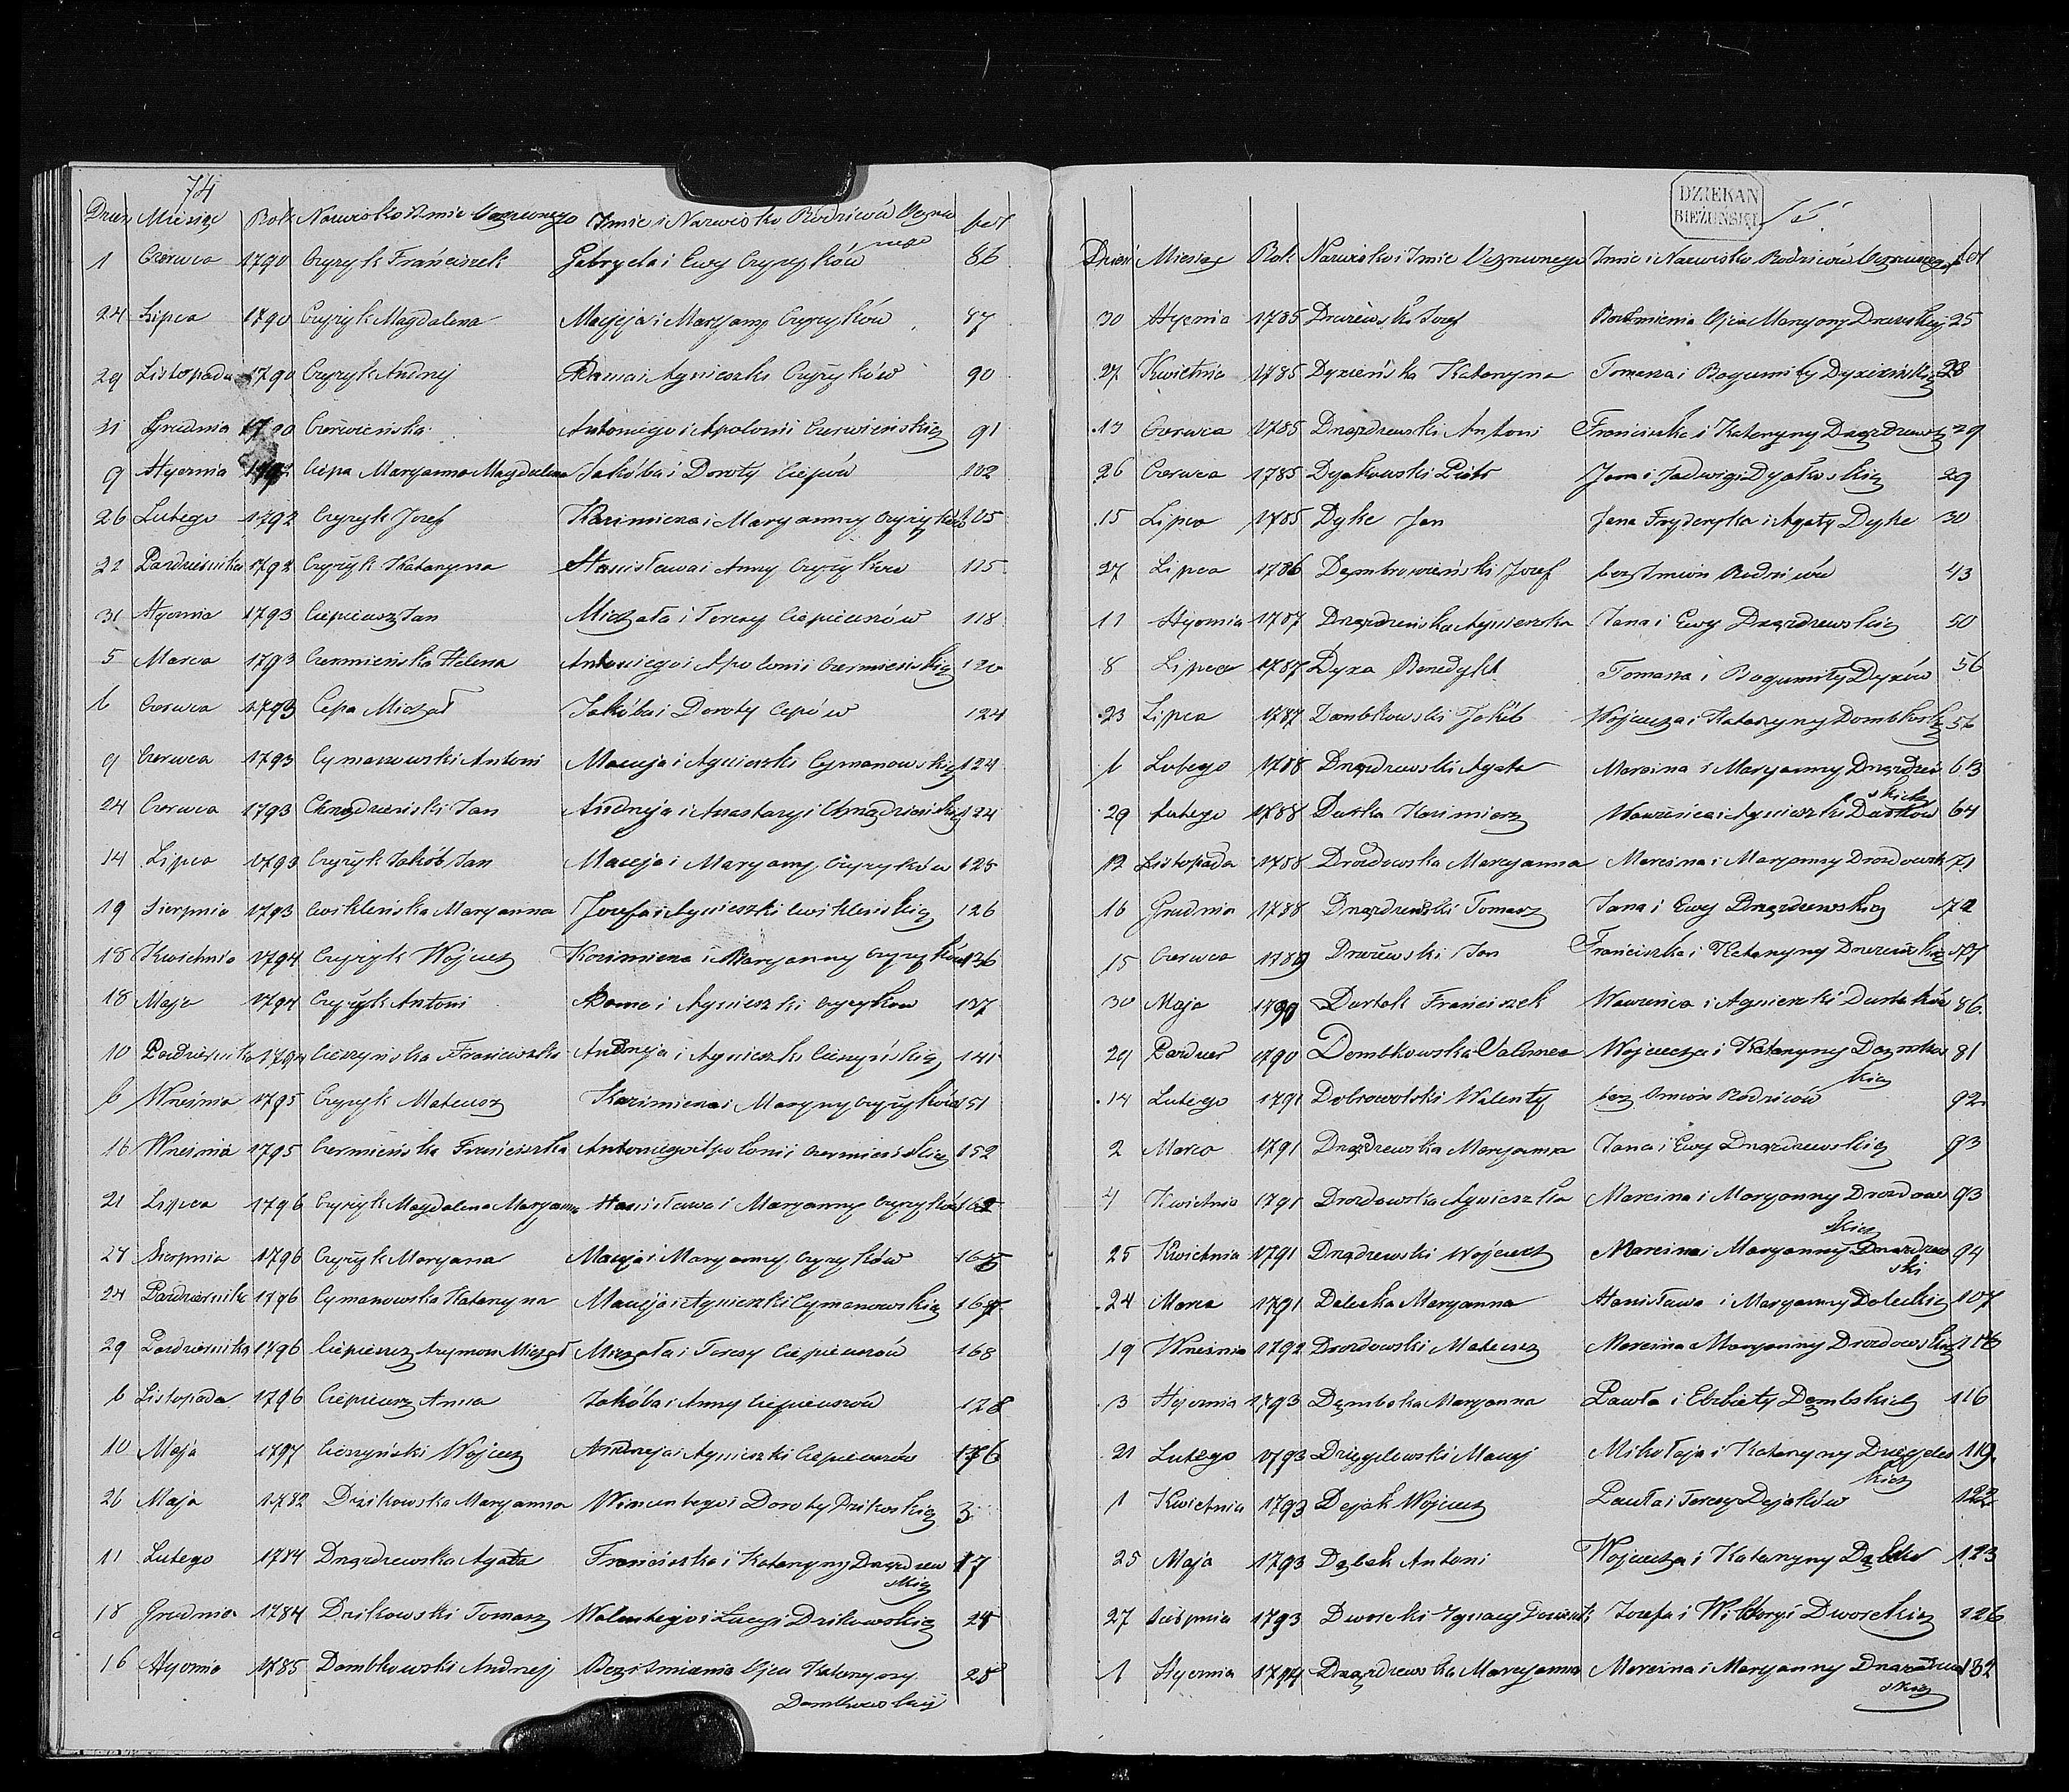 74
Dzień Miesiąc Rok Nazwisko i Imie Uczniowego Imie i Nazwisko Rodziców
1 Czerwca 1790 Czyżyk Franciszek Gabryela i Ewy Czyżyków 86
24 Lipca 1790 Czyżyk Magdalena Macieja i Maryany Czyżyków 87
29 Listopada 1790 Czyżyk Andrzej Adama i Agnieszki Czyżyków 90
Grudnia Czerwieńska Antoniego i Apolonii Czerwieńskich 91
9 Stycznia Ciepa Maryanna Magdalena Jakóba i Doroty Ciepów 102
26 Lutego 1792 Czyżyk Jozef Kazimierza i Maryanny Czyżyków 105
22 Pazdziernika 1792 Czyżyk Katarzyna Stanisława i Anny Czyżyków 115
31 Stycznia 1793 Ciepieusz Jan Michała i Teresy Ciepieuszów 118
5 Marca 1793 Czermieńska Helena Antoniego i Apolonii Czermieńskich 120
6 Czerwca 1793 Cepa Michał Jakóba i Doroty Cepów 124
9 Czerwca 1793 Cymanowski Antoni Macieja i Agnieszki Cymanowskich 124
24 Czerwca 1793 Jan Andrzeja i Anastazyi 124
14 Lipca 1793 Czyżyk Jakób Jan Macieja i Maryany Czyżyków 125
19 Sierpnia 1793 Cwiklińska Maryanna Jozefa i Agnieszki Cwiklińskich 126
18 Kwietnia 1794 Czyżyk Wojciech Kazimierza i Maryanny Czyżyków 136
18 Maja 1794 Czyżyk Antoni Adama i Agnieszki Czyżyków 137
10 Pazdziernika 1794 Cieszyńska Franciszka Andrzeja i Agnieszki Cieszyńskich 141
6 Wrzesnia 1795 Czyżyk Mateusz Kazimierza i Maryny Czyżyków 151
16 Wrzesnia 1795 Czermieńska Franciszka Antoniego i Apolonii Czermieńskich 152
21 Lipca 1796 Czyżyk Magdalena Maryanna Stanisława i Maryanny Czyżyków
27 Sierpnia 1796 Czyżyk Maryana Macieja i Maryanny Czyżyków
24 Pazdziernika 1796 Cymanowska Katarzyna Macieja i Agnieszki Cymanowskich 167
29 Pazdziernika 1796 Ciepieusz Szymon Michał Michała i Teresy Ciepieuszów 168
6 Listopada 1796 Ciepieusz Anna Jakóba i Anny Ciepieuszów
10 Maja 1797 Cieszyński Wojciech Andrzeja i Agnieszki Ciepieuszów 176
26 Maja 1782 Dzikowska Maryanna Wincentego i Doroty Dzikoskich 3
11 Lutego 1784 Drązdzewska Agata Franciszka i Katarzyny Drązdzew 17
skich
18 Grudnia 1784 Dzikowski Tomasz Walentego i Łucyi Dzikowskich
16 Stycznia 1785 Dombkowski Andrzej Bez Imienia Ojca Katarzyny 25
Dombkowskiej
DZIEKAN
BIEŻUŃSKI
Dzień Miesiąc Rok Nazwisko i Imie Imie i Nazwisko Rodziców
30 Stycznia 1785 Jozef Bez Imienia Ojca Maryany 25
27 Kwietnia 1785 Katarzyna Tomasza i Bogumiły 28
13 Czerwca 1785 Drązdzewski Antoni Franciszka i Katarzyny Drązdzewsk 29
26 Czerwca 1785 Dyakowski Piotr Jana i Jadwigi Dyakoskich 29
15 Lipca 1785 Dyke Jan Jana Fryderyka i Agaty Dyke 30
27 Lipca 1786 Jozef bez Imion Rodziców 43
11 Stycznia 1787 Drązdzewska Agnieszka Jana i Ewy Drązdzewskich 50
8 Lipca 1787 Dyza Benedykt Tomasza i Bogumiły Dyzów 56
23 Lipca 1787 Dombkowski Jakób Wojciecha i Katarzyny Dombkoskich 56
1 Lutego 1788 Drązdzewski Agata Marcina i Maryanny Drązdzew 63
skich
29 Lutego 1788 Durka Kazimierz Wawrzeńca i Agnieszki Durków 64
12 Listopada 1788 Drozdowska Maryanna Marcina i Maryanny Drozdowsk 71
16 Grudnia 1788 Drązdzewski Tomasz Jana i Ewy Drązdzewskich 72
15 Czerwca 1789 Jan Franciszka i Katarzyny 77
30 Maja 1790 Durtak Franciszek Wawrzeńca i Agnieszki Durtaków 86
29 1790 Dombkowska Wojciecha i Katarzyny 81
kich
14 Lutego 1791 Dobrowolski Walenty bez Imion Rodziców 92
2 Marca 1791 Drązdzewska Maryanna Jana i Ewy Drązdzewskich 93
4 Kwietnia 1791 Drozdowska Agnieszka Marcina i Maryanny Drozdow 93
skich
25 Kwietnia 1791 Drązdzewski Wojciech Marcina i Maryanny Drązdzew 94
ski
24 Marca 1791 Dalecka Maryanna Stanisława i Maryanny Doleckich 107
19 Wrzesnia 1792 Drozdowski Mateusz Marcina Maryanny Drozdowskich
3 Stycznia 1793 Dąmbska Maryanna Pawła i Elzbiety Dąmbskich 116
21 Lutego 1793 Maciej Mikołaja i Katarzyny 119
kich
1 Kwietnia 1793 Dejak Wojciech Pawła i Teresy Dejaków 122
25 Maja 1793 Dąbek Antoni Wojciecha i Katarzyny 123
27 Sierpnia 1793 Dworecki Ignacy Jozefa i Wiktoryi Dworeckich 126
1 Stycznia 1794 Drązdzewska Maryanna Marcina i Maryanny Drązdzew 132
skich